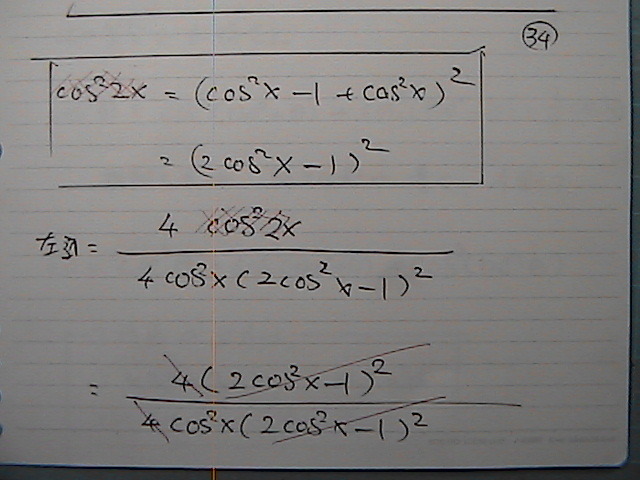 34
cos²2x = (cos²x - 1 + cos²x)²
= (2cos²x - 1)²
4 cos²2x
左项 =
4cos²x(2cos²x - 1)²
4(2cos²x - 1)²
=
4cos²x(2cos²x - 1)²